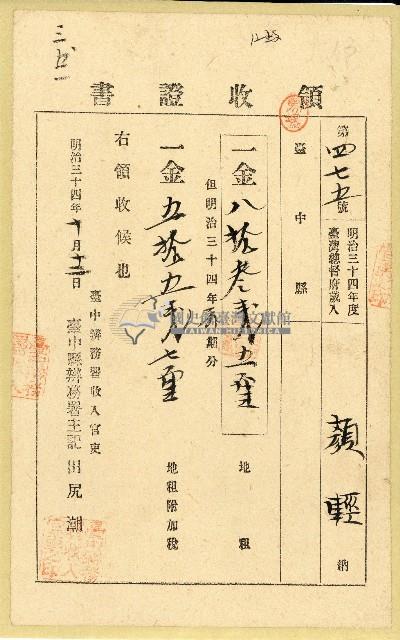 領收證書
第四七五號
明治三十四年度
臺灣總督府歲入
臺中縣
顏輕 納
一金八拾叁錢五厘 地租
但明治三十四年 期分
一金五拾五錢七厘 地租附加稅
右領收候也
明治三十四年十月十二日
臺中辨務署收入官吏
臺中縣辨務署主記 田尻潮
國史館臺灣文獻館
TAIWAN HISTORICA